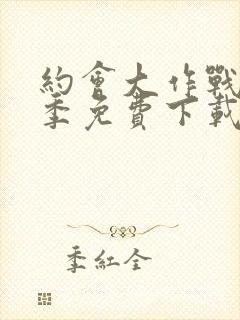 約會大作戰
季免費下載
季紅全